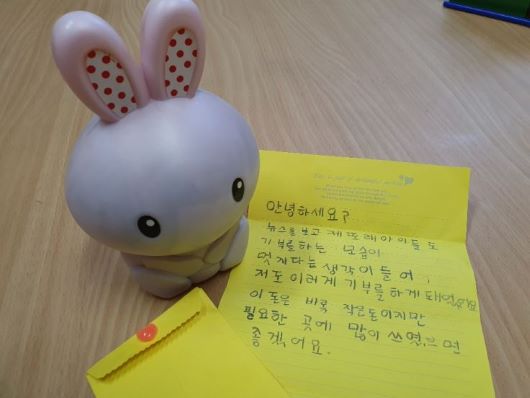 안녕하세요?
뉴스를 보고 제 또래 아이들도
기부를 하는 모습이
멋지다는 생각이 들어,
저도 이러게 기부를 하게 돼었어요
이 돈은 비록 작은돈이지만
필요한 곳에 많이 쓰였으면
좋겠어요.